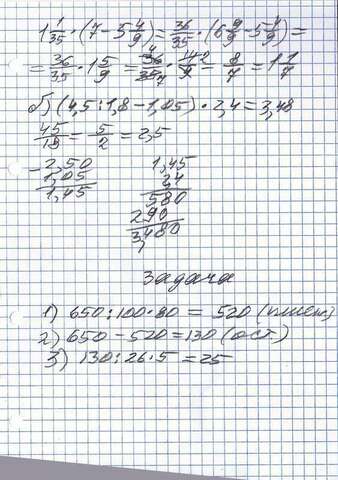 1 1/35 · (7 - 5 4/9) = 36/35 · (6 9/9 - 5 4/9) =
= 36/35 · 1 5/9 = 36/35 · 14/9 = 8/7 = 1 1/7
б) (4,5 : 1,8 - 1,05) · 2,4 = 3,48
45/18 = 5/2 = 2,5
- 2,50
1,05
1,45
1,45
2,4
580
290
3,480
Задача
1) 650 : 100 · 80 = 520 (пшен.)
2) 650 - 520 = 130 (ост.)
3) 130 : 26 · 5 = 25